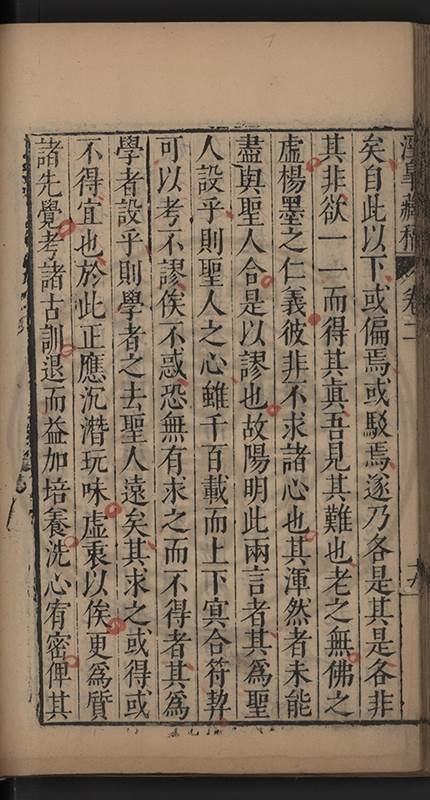 藏稿 卷二
矣自此以下或偏焉或駁焉遂乃各是其是各非
其非欲一一而得其真吾見其難也老之無佛之
虛楊墨之仁義彼非不求諸心也其渾然者未能
盡與聖人合是以謬也故陽明此兩言者其為聖
人設乎則聖人之心雖千百載而上下㝠合符契
可以考不謬俟不惑恐無有求之而不得者其為
學者設乎則學者之去聖人遠矣其求之或得或
不得宜也於此正應沉潛玩味虛衷以俟更為質
諸先覺考諸古訓退而益加培養洗心宥密俾其